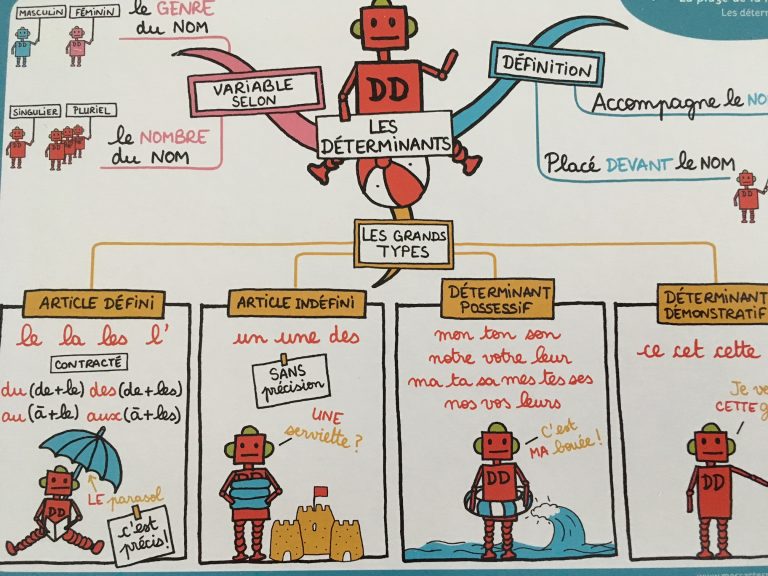 MASCULIN
FÉMININ
le GENRE
du NOM
SINGULIER
PLURIEL
le NOMBRE
du NOM
VARIABLE
SELON
DD
LES
DÉTERMINANTS
DÉFINITION
Accompagne le NO
Placé DEVANT le NOM
La plage de la
Les déterm
LES GRANDS
TYPES
ARTICLE DÉFINI
le la les l'
CONTRACTÉ
du (de+le) des (de+les)
au (à+le) aux (à+les)
LE parasol
DD
c'est
précis!
ARTICLE INDÉFINI
un une des
SANS
précision
UNE
serviette ?
DD
DÉTERMINANT
POSSESSIF
mon ton son
notre votre leur
ma ta sa mes tes ses
nos vos leurs
C'est
MA bouée !
DD
DÉTERMINANT
DÉMONSTRATIF
ce cet cette
Je ve
CETTE g
DD